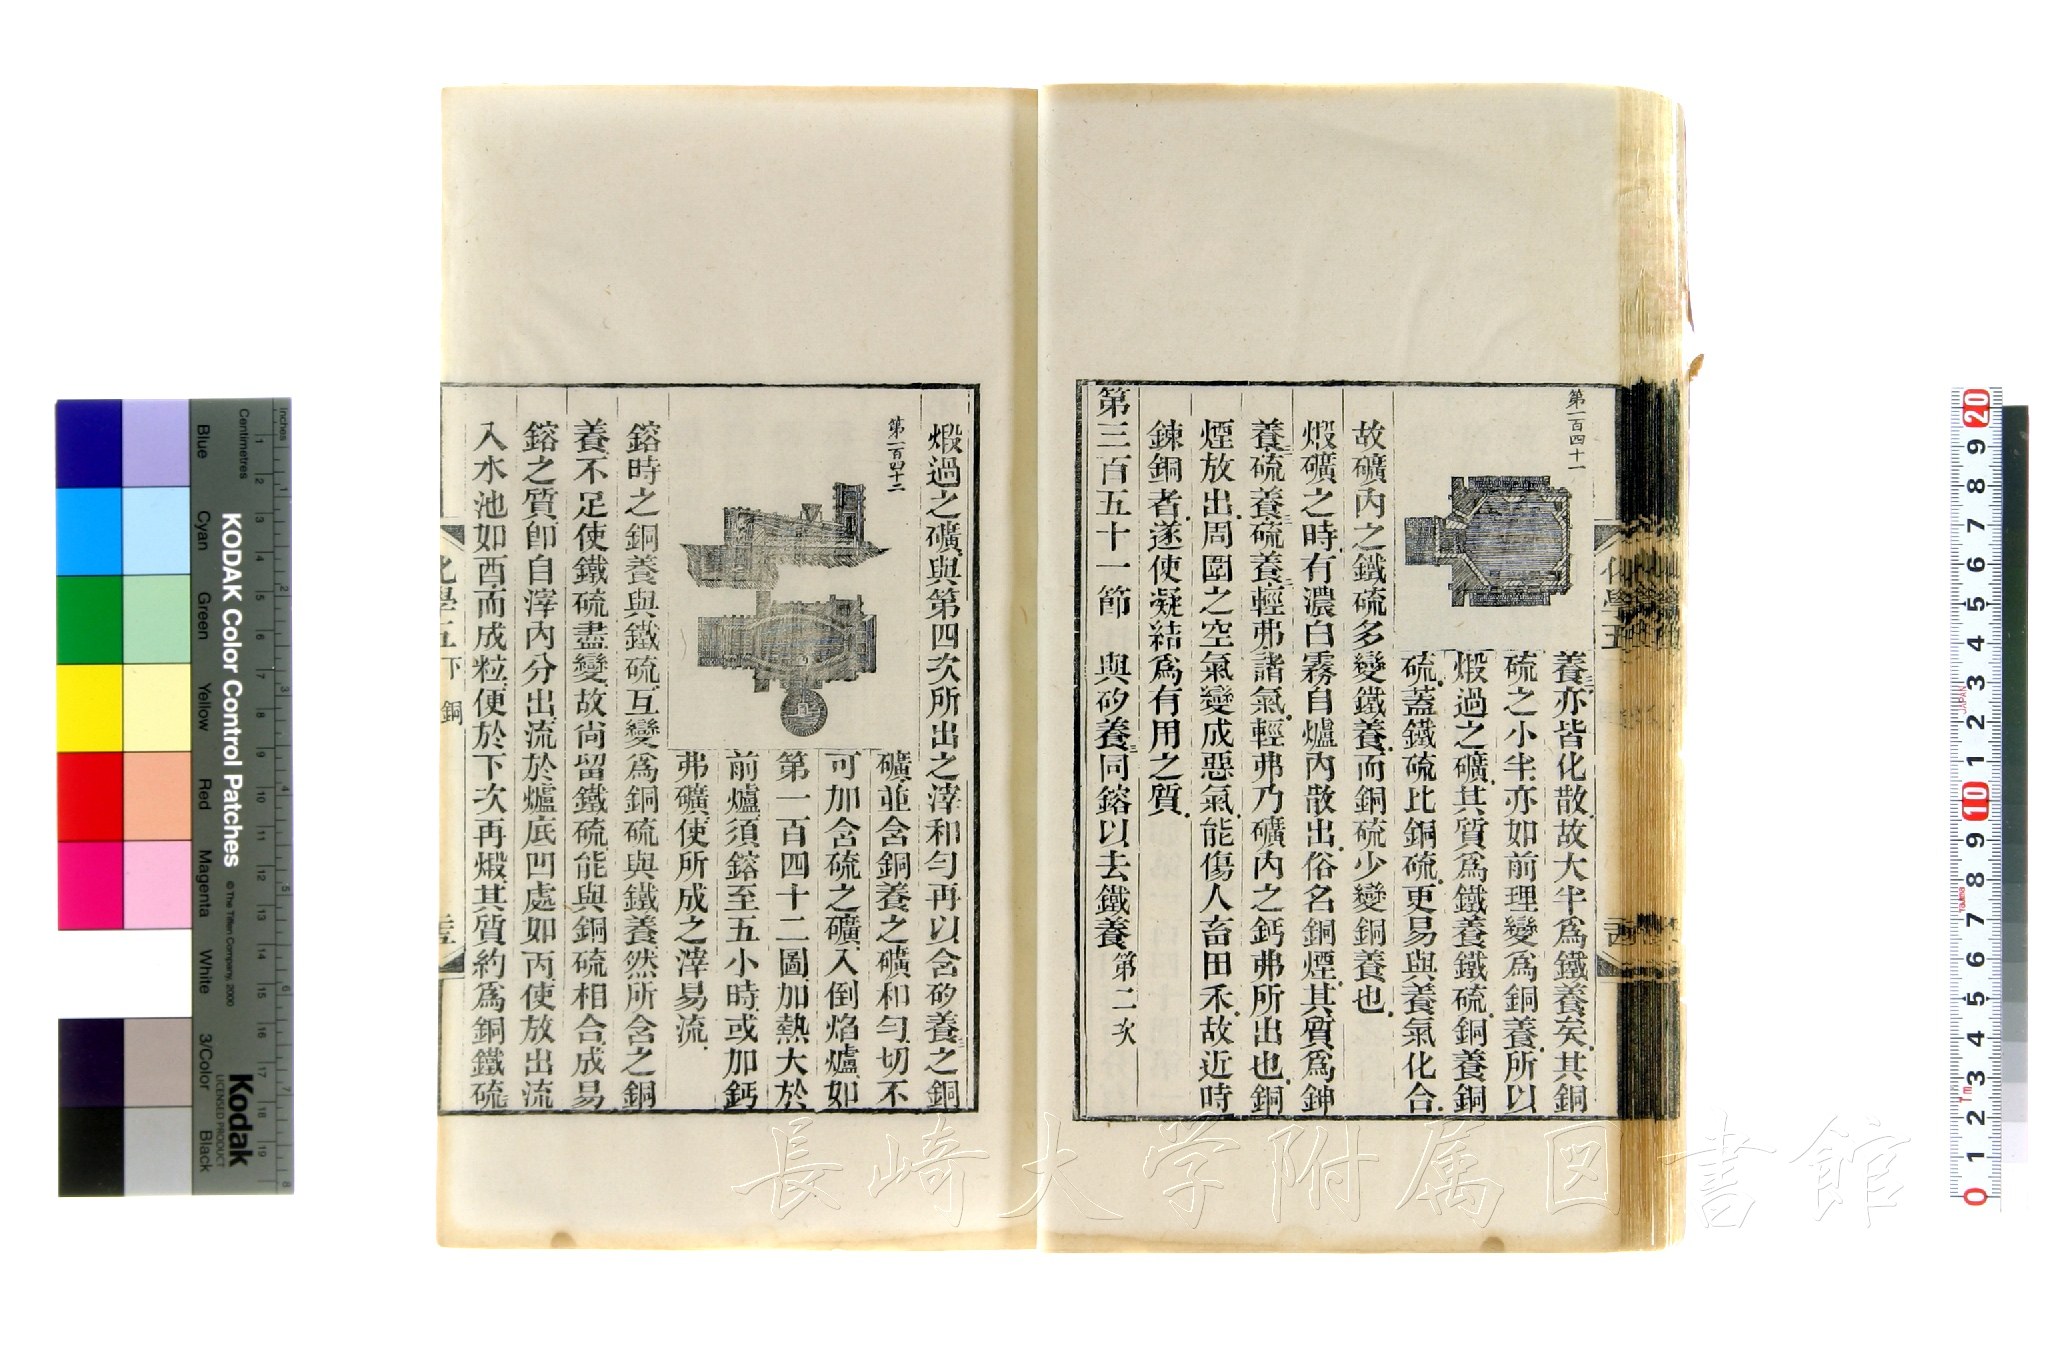 第一百四十一
養亦皆化散故大半爲鐵養矣其銅
硫之小半亦如前理變爲銅養所以
煅過之礦其質爲鐵養鐵硫銅養銅
硫蓋鐵硫比銅硫更易與養氣化合
故礦內之鐵硫多變鐵養而銅硫少變銅養也
煅礦之時有濃白霧自爐內散出俗名銅煙其質爲鉮
養三硫養二硫養三輕弗諸氣輕弗乃礦內之鈣弗所出也銅
煙放出周圍之空氣變成惡氣能傷人畜田禾故近時
鍊銅者遂使凝結爲有用之質
第三百五十一節 與矽養三同鎔以去鐵養 第二次
煅過之礦與第四次所出之滓和勻再以含矽養三之銅
第一百四十二
礦並含銅養之礦和勻切不
可加含硫之礦入倒焰爐如
第一百四十二圖加熱大於
前爐須鎔至五小時或加鈣
弗礦使所成之滓易流
鎔時之銅養與鐵硫互變爲銅硫與鐵養然所含之銅
養不足使鐵硫盡變故尚留鐵硫能與銅硫相合成易
鎔之質卽自滓內分出流於爐底凹處如丙使放出流
入水池如酉而成粒便於下次再煅其質約爲銅鐵硫
化學五下 銅
KODAK Color Control Patches
© The Tiffen Company, 2000
Kodak
LICENSED PRODUCT
Inches
Centimetres
Blue Cyan Green Yellow Red Magenta White 3/Color Black
長崎大学附属図書館